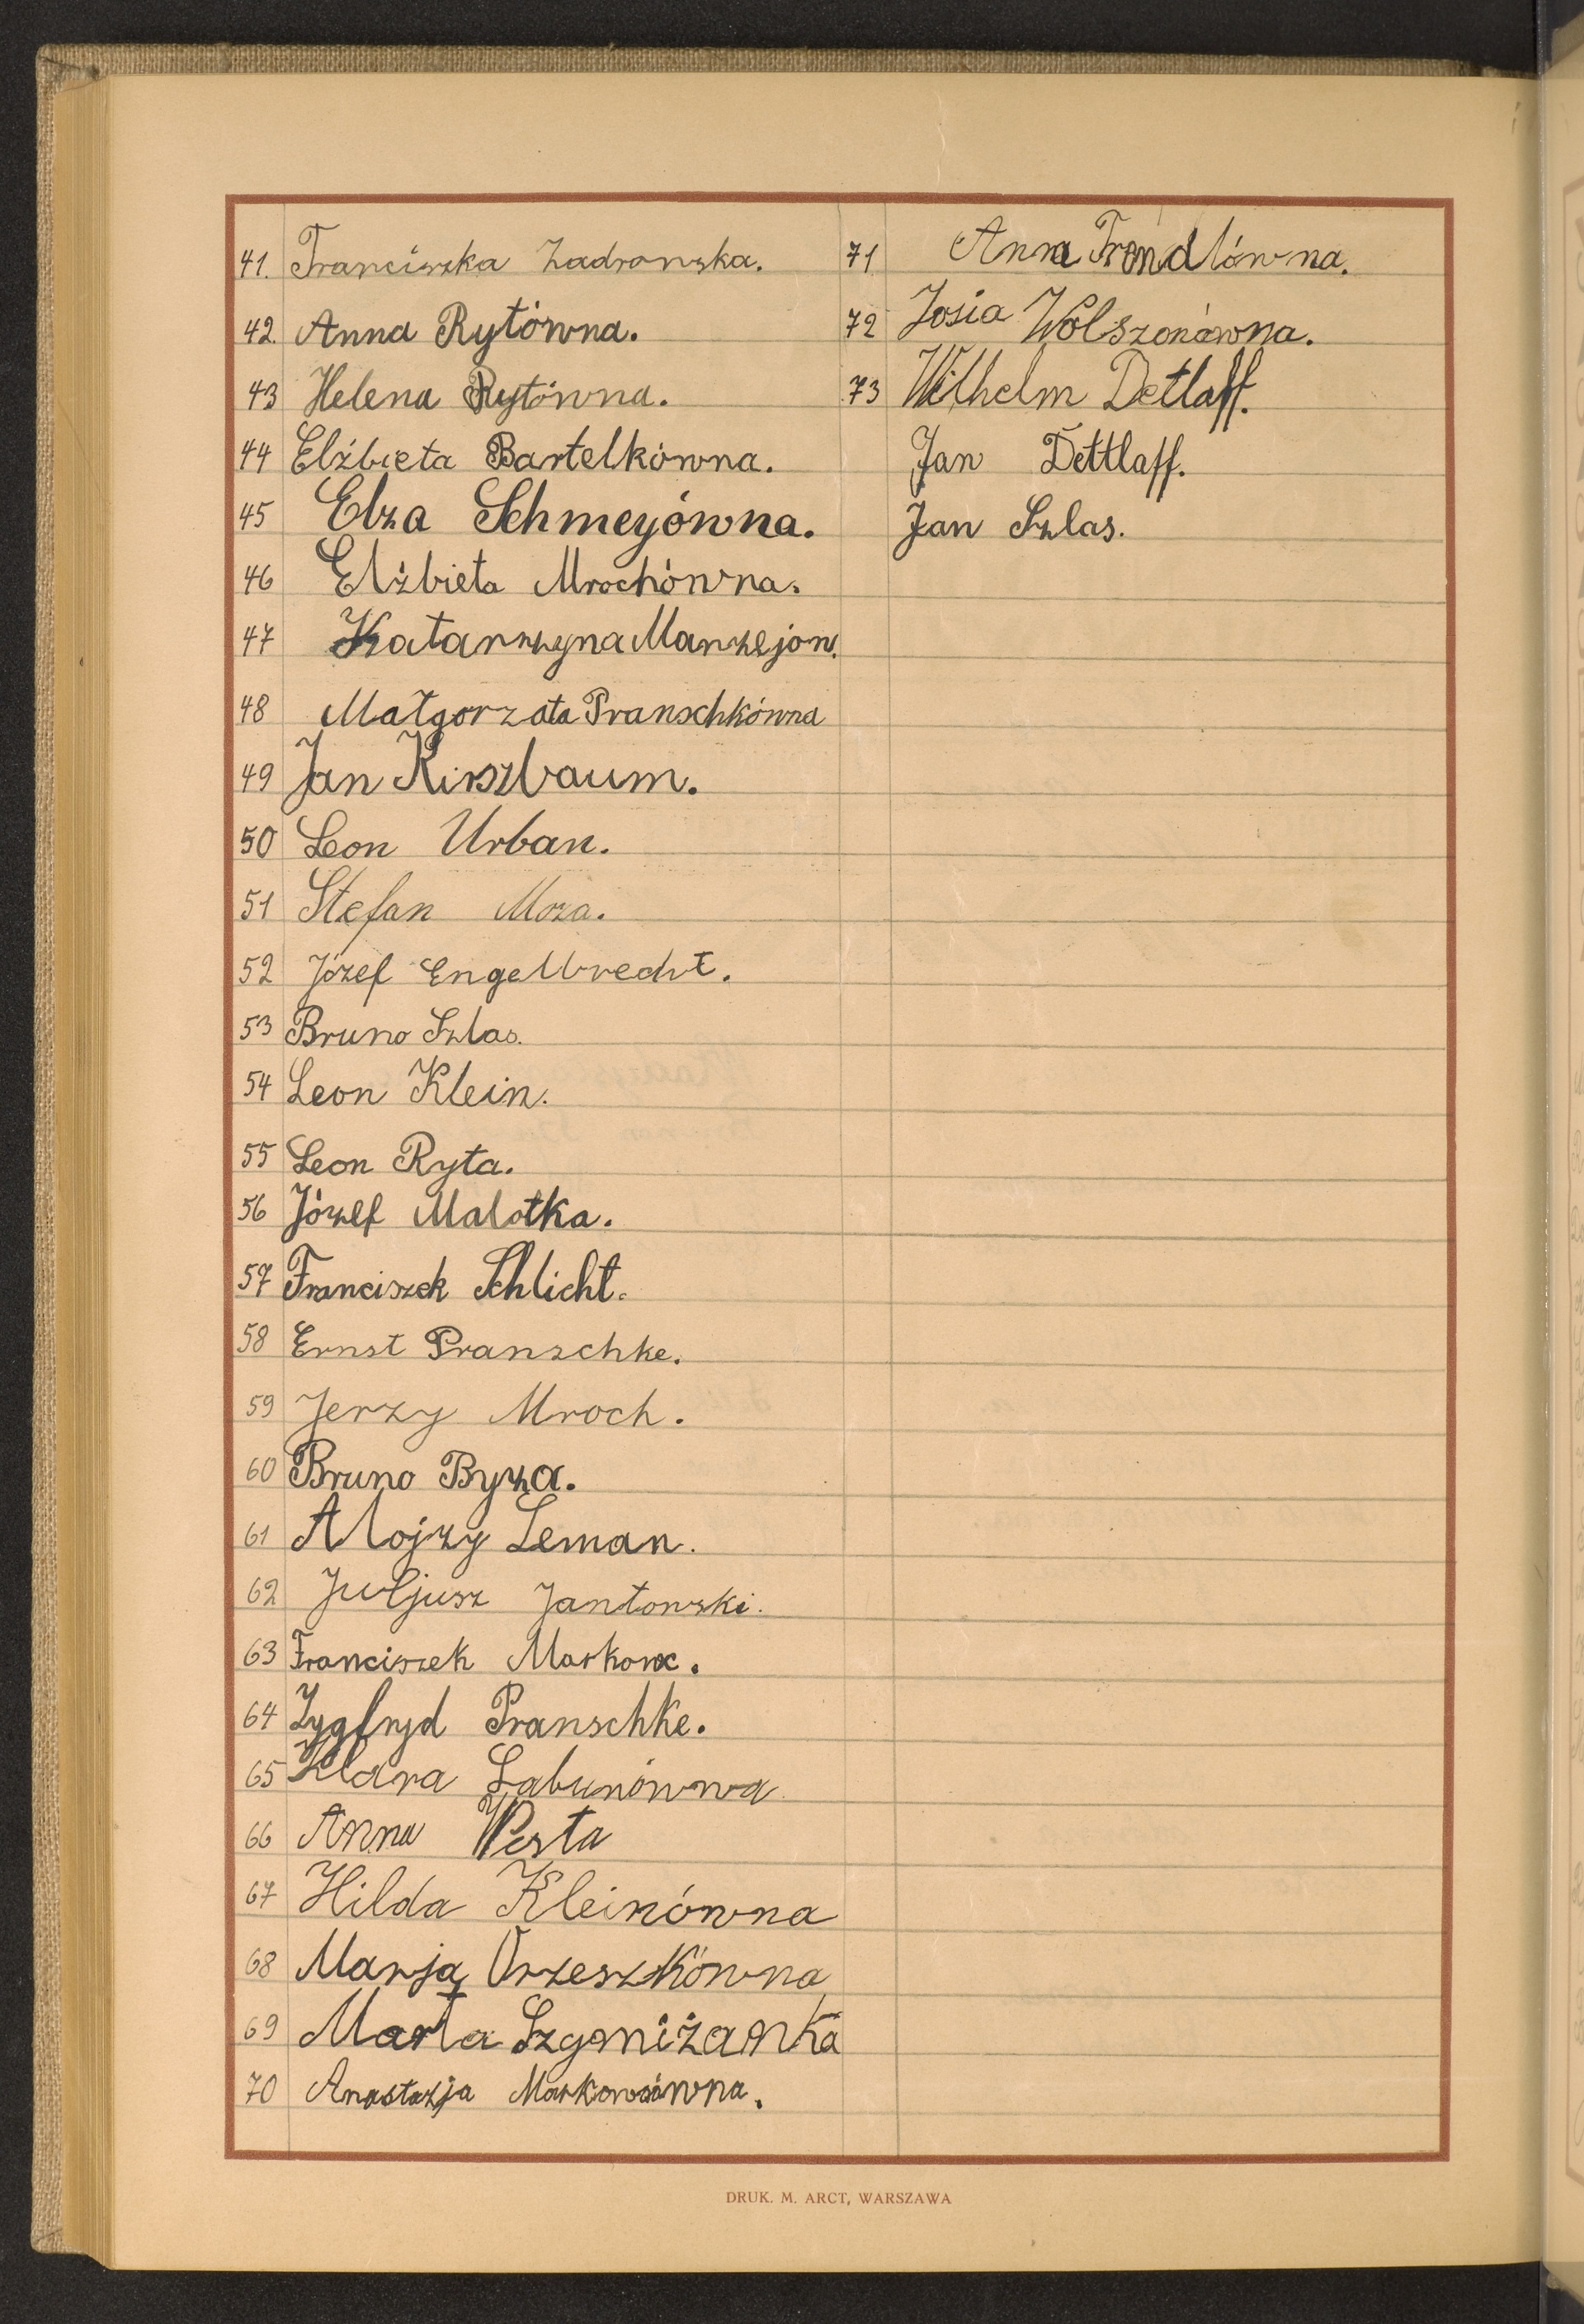 41. Franciszka Zadrowska.
42. Anna Rytówna.
43 Helena Rytówna.
44 Elżbieta Bartelkówna.
45 Elza Schmeyówna.
46 Elżbieta Mrochówna.
47 Katarzyna Manzejon.
48 Małgorzata Pranschkówna
49 Jan Kirszbaum.
50 Leon Urban.
51 Stefan Moza.
52 Józef Engelbrecht.
53 Bruno Szlas.
54 Leon Klein.
55 Leon Ryta.
56 Józef Malotka.
57 Franciszek Schlicht.
58 Ernst Pranschke.
59 Jerzy Mroch.
60 Bruno Byza.
61 Alojzy Leman.
62 Juljusz Jantowski.
63 Franciszek Markowc.
64 Zygfryd Pranschke.
65 Klara Labunówna
66 Anna Westa
67 Hilda Kleinówna
68 Marja Orzeszkówna
69 Marta Szgoniżanka
70 Anastazja
71 Anna Trendlówna.
72 Zosia Wolszonówna.
73 Wilhelm Detlaff.
Jan Dettlaff.
Jan Szlas.
DRUK. M. ARCT, WARSZAWA